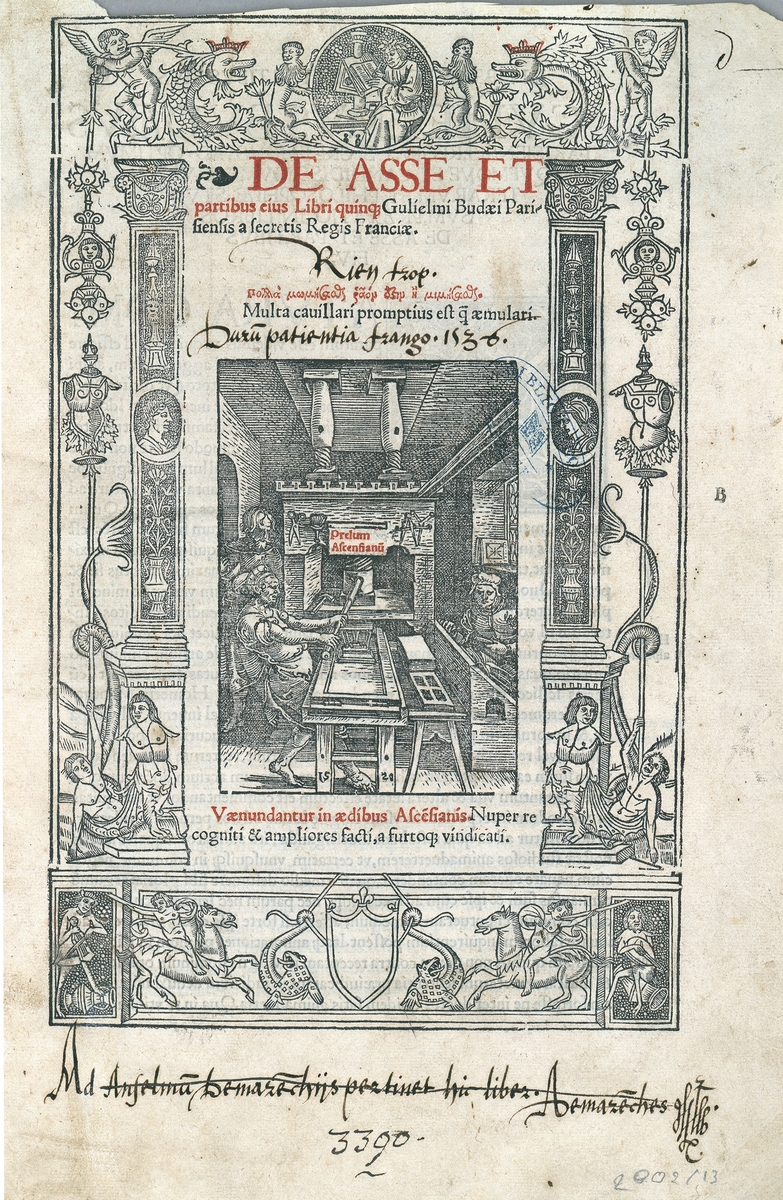 DE ASSE ET
partibus eius Libri quinqꝫ Gulielmi Budæi Pari-
siensis a secretis Regis Franciæ.
Rien trop.
Multa cauillari promptius est q̄ æmulari.
Durū patientia frango. 1536.
Prelum
Ascensianū
15 20
Vænundantur in ædibus Ascēsianis Nuper re
cogniti & ampliores facti, a furtoqꝫ vindicati.
B
Ad Anselmū Demarēchijs pertinet hic liber.
Demarēches
3390.
2002/13